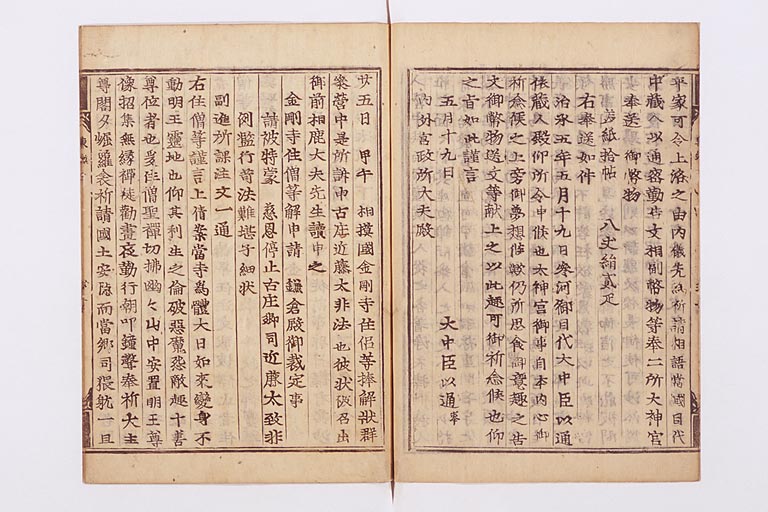 平家可令上洛之由内儀先爲祈請相語當國目代
中藏人以通密勤告文相副幣物等奉二所大神宮
奉送 御幣物
美紙拾帖 八丈絹貳疋
右奉送如件
治承五年五月十九日參河御目代大中臣以通
依藏人殿仰所令申候也太神宮御事自本内心御
祈念候之上旁御夢想候歟仍所思食御意趣之告
文御幣物送文等獻上之以此趣可御祈念候也仰
之旨如此謹言
五月十九日 大中臣以通奉
内外宮政所大夫殿
廿五日 甲午 相摸國金剛寺住侶等捧解狀群
參營中是所訴申古庄近藤太非法也彼狀被召出
御前相鹿大夫先生讀申之
金剛寺住僧等解申請 鎌倉殿御裁定事
請被特蒙 慈恩停止古庄鄕司近藤太致非
例濫行苛法難堪子細狀
副進所課注文一通
右住僧等謹言上倩案當寺爲體大日如來變身不
動明王靈地也仰其利生之倫破惡魔怨敵趣十善
尊位者也爰住僧聖禪切拂幽々山中安置明王尊
像招集無縁禪徒勸晝夜勤行朝叩鐘聲奉祈大主
尊閤夕崛羅衾祈請國土安隱而當鄕司猥執一旦